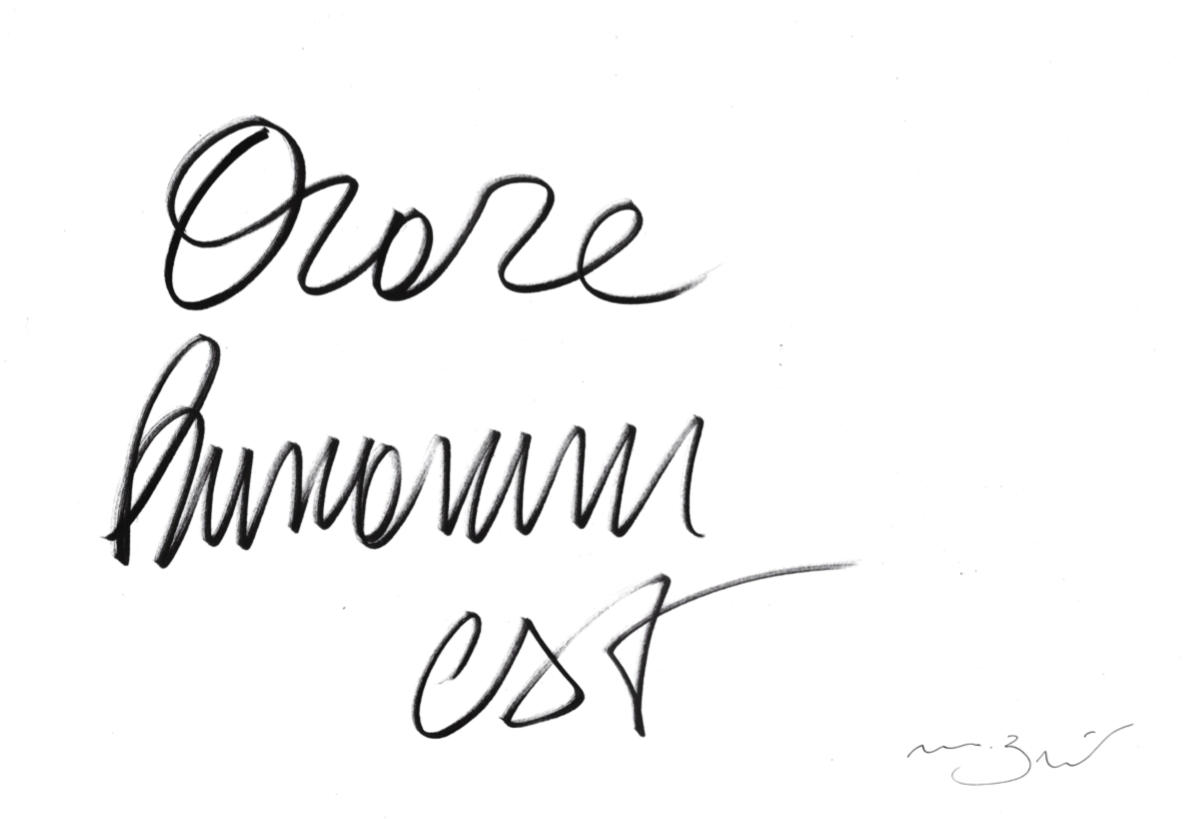 Orare
Humanum
est